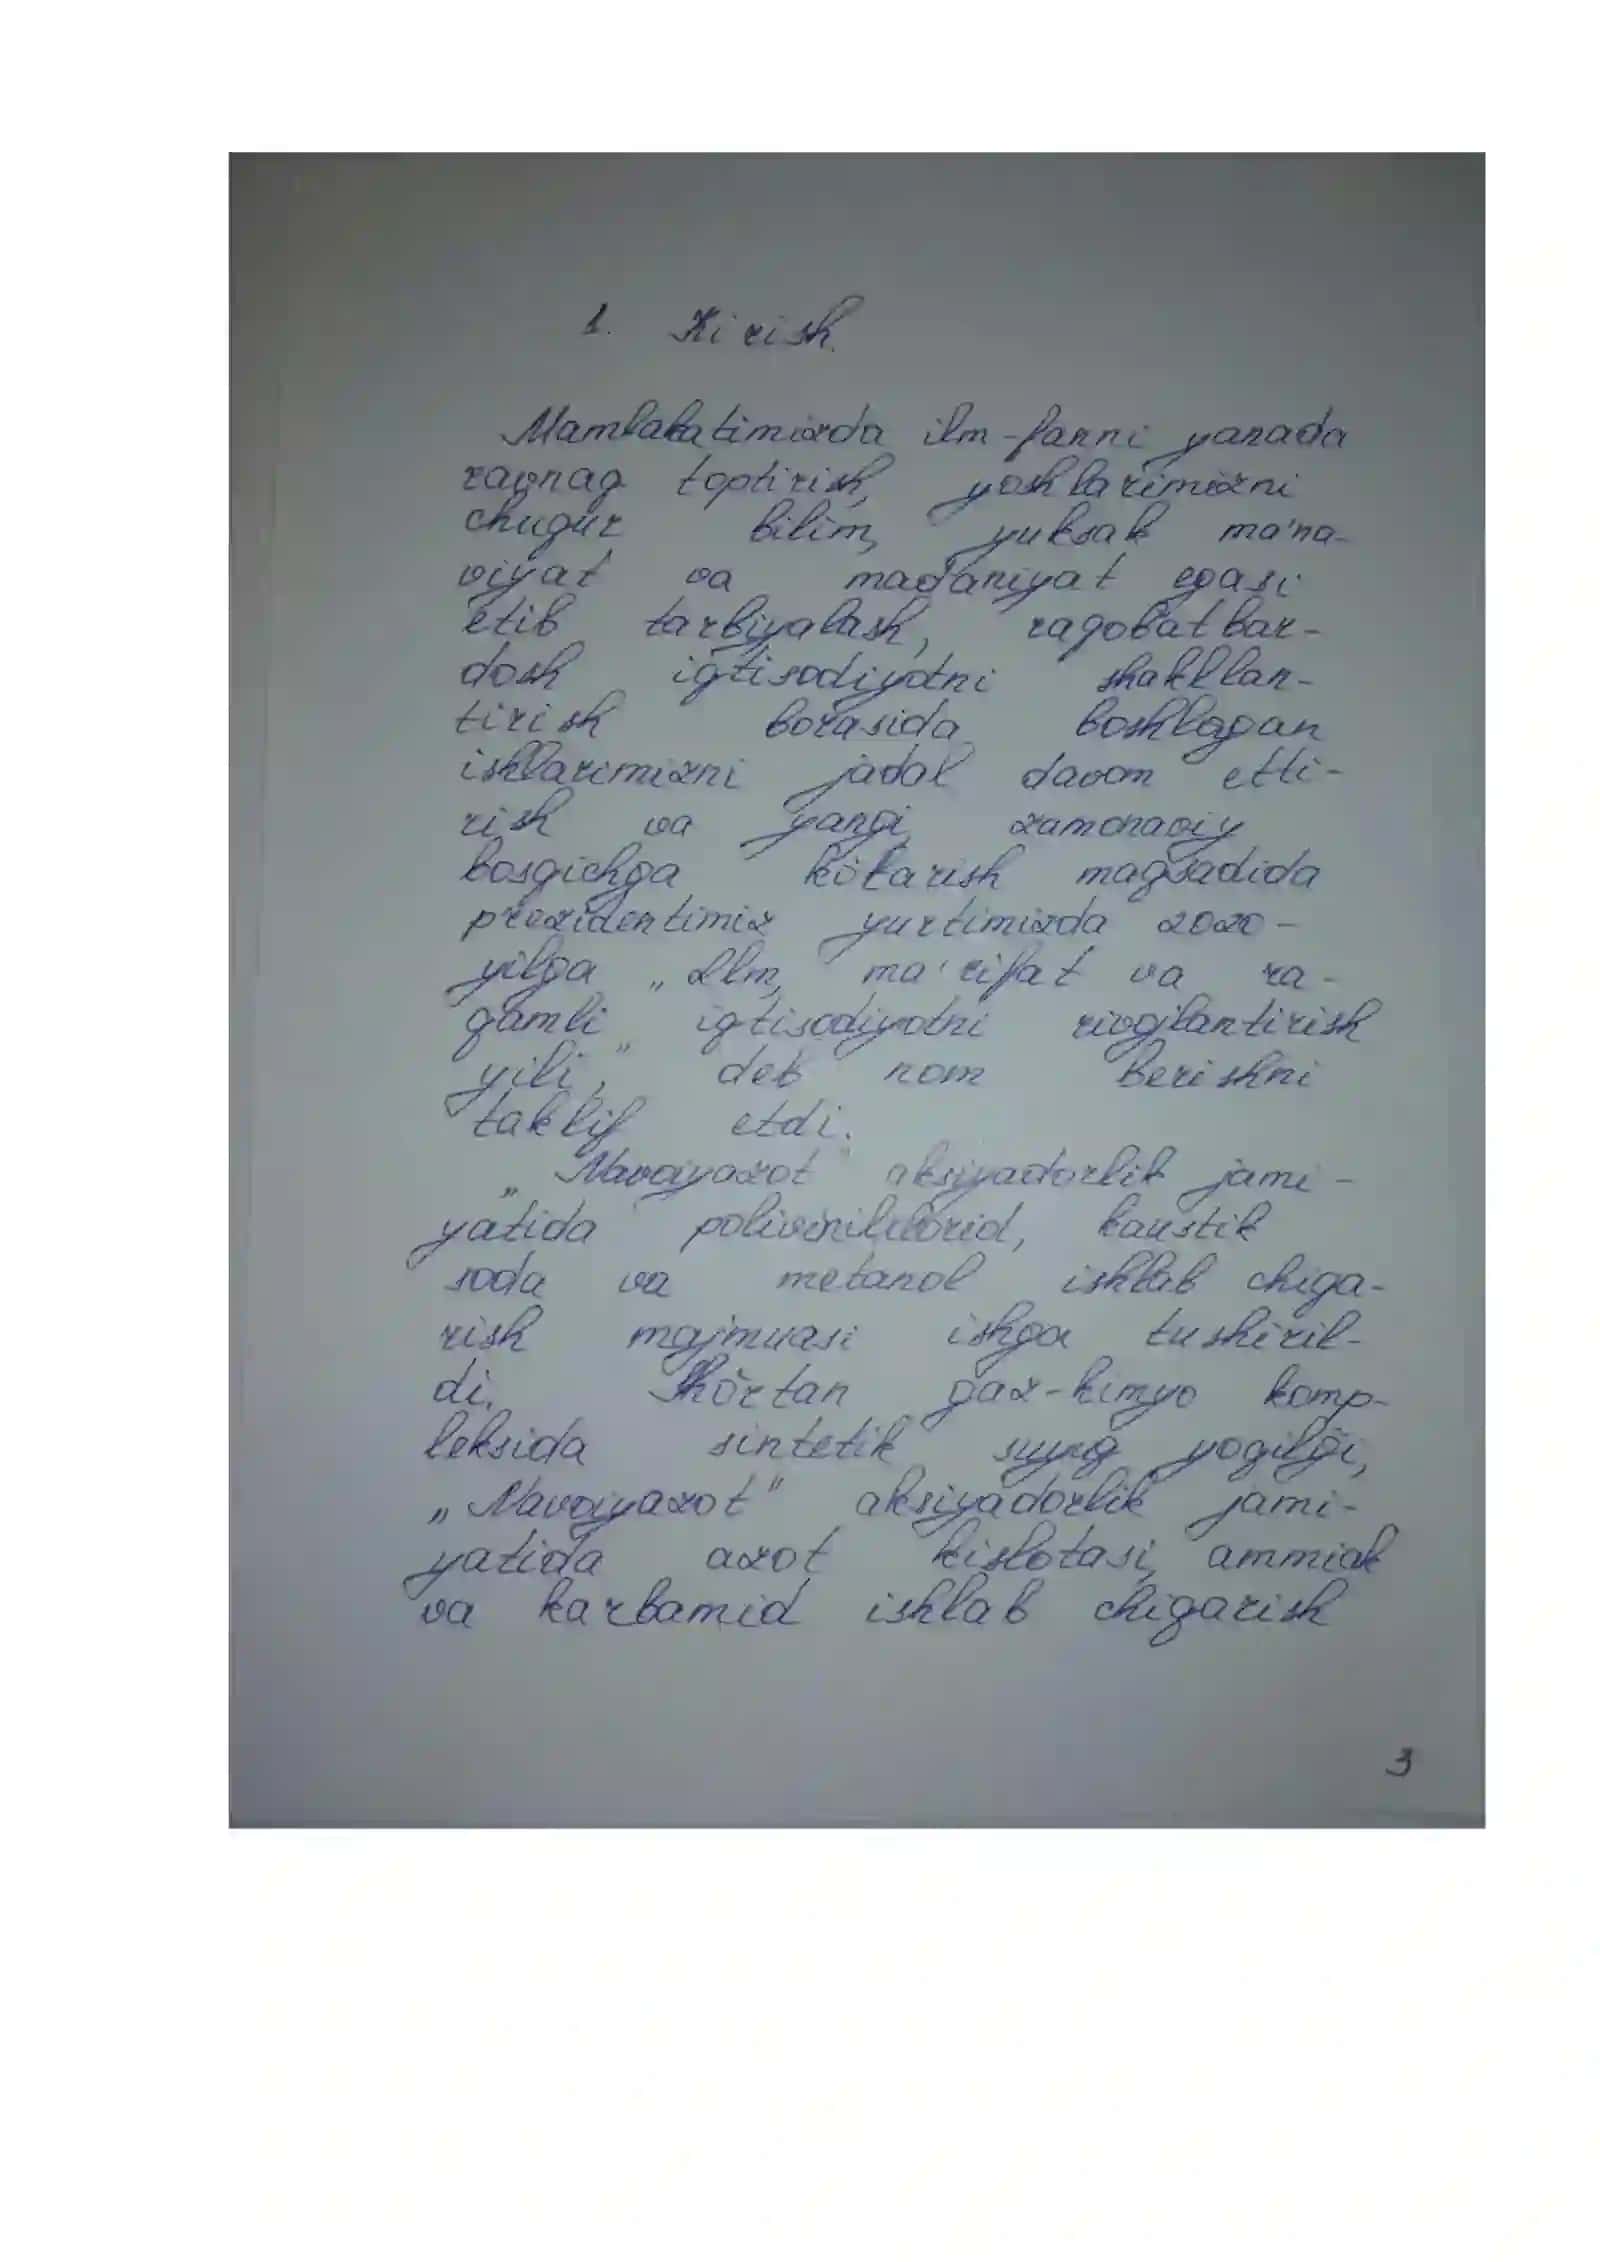 1. Kirish.
Mamlakatimizda ilm-fanni yanada
ravnaq toptirish, yoshlarimizni
chuqur bilim, yuksak ma'na-
viyat va madaniyat egasi
etib tarbiyalash, raqobatbar-
dosh iqtisodiyotni shakllan-
tirish borasida boshlagan
ishlarimizni jadal davom etti-
rish va yangi zamonaviy
bosqichga ko'tarish maqsadida
prezidentimiz yurtimizda 2020-
yilga „Ilm, ma'rifat va ra-
qamli iqtisodiyotni rivojlantirish
yili," deb nom berishni
taklif etdi.
„Navoiyazot" aksiyadorlik jami-
yatida polivinilxlorid, kaustik
soda va metanol ishlab chiqa-
rish majmuasi ishga tushiril-
di. Sho'rtan gaz-kimyo komp-
leksida sintetik suyuq yoqilg'i,
„Navoiyazot" aksiyadorlik jami-
yatida azot kislotasi, ammiak
va karbamid ishlab chiqarish
3